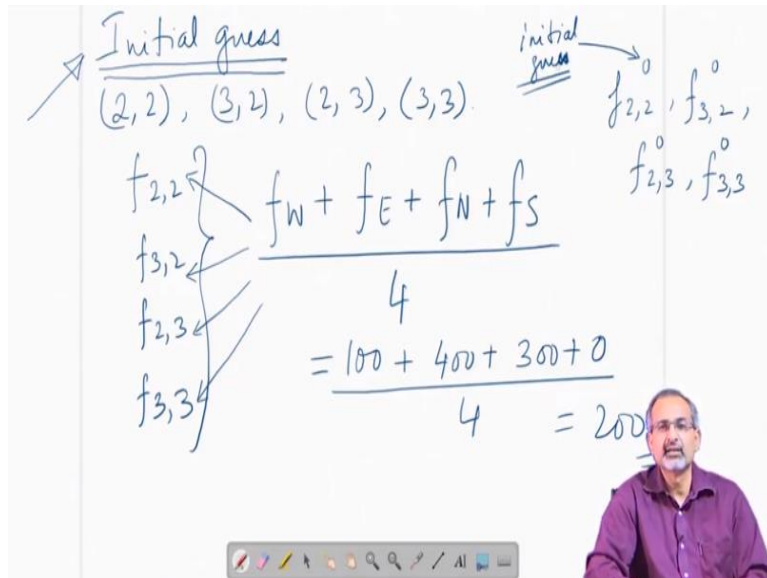 Initial guess
(2,2), (3,2), (2,3), (3,3).
initial
guess
f⁰2,2, f⁰3,2,
f⁰2,3, f⁰3,3
f2,2
f3,2
f2,3
f3,3
fW + fE + fN + fS
4
= 100 + 400 + 300 + 0
4
= 200
A